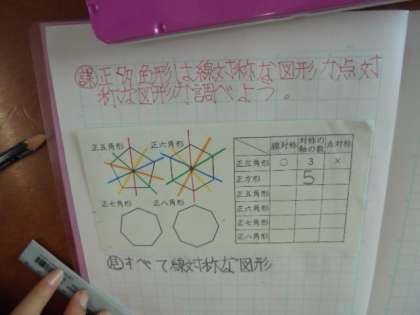 課 正多角形は線対称な図形か点対
称な図形か調べよう。
正五角形 正六角形
正七角形 正八角形
線対称 対称の軸の数 点対称
正三角形 ○ 3 ×
正方形 5
正五角形
正六角形
正七角形
正八角形
見 すべて線対称な図形